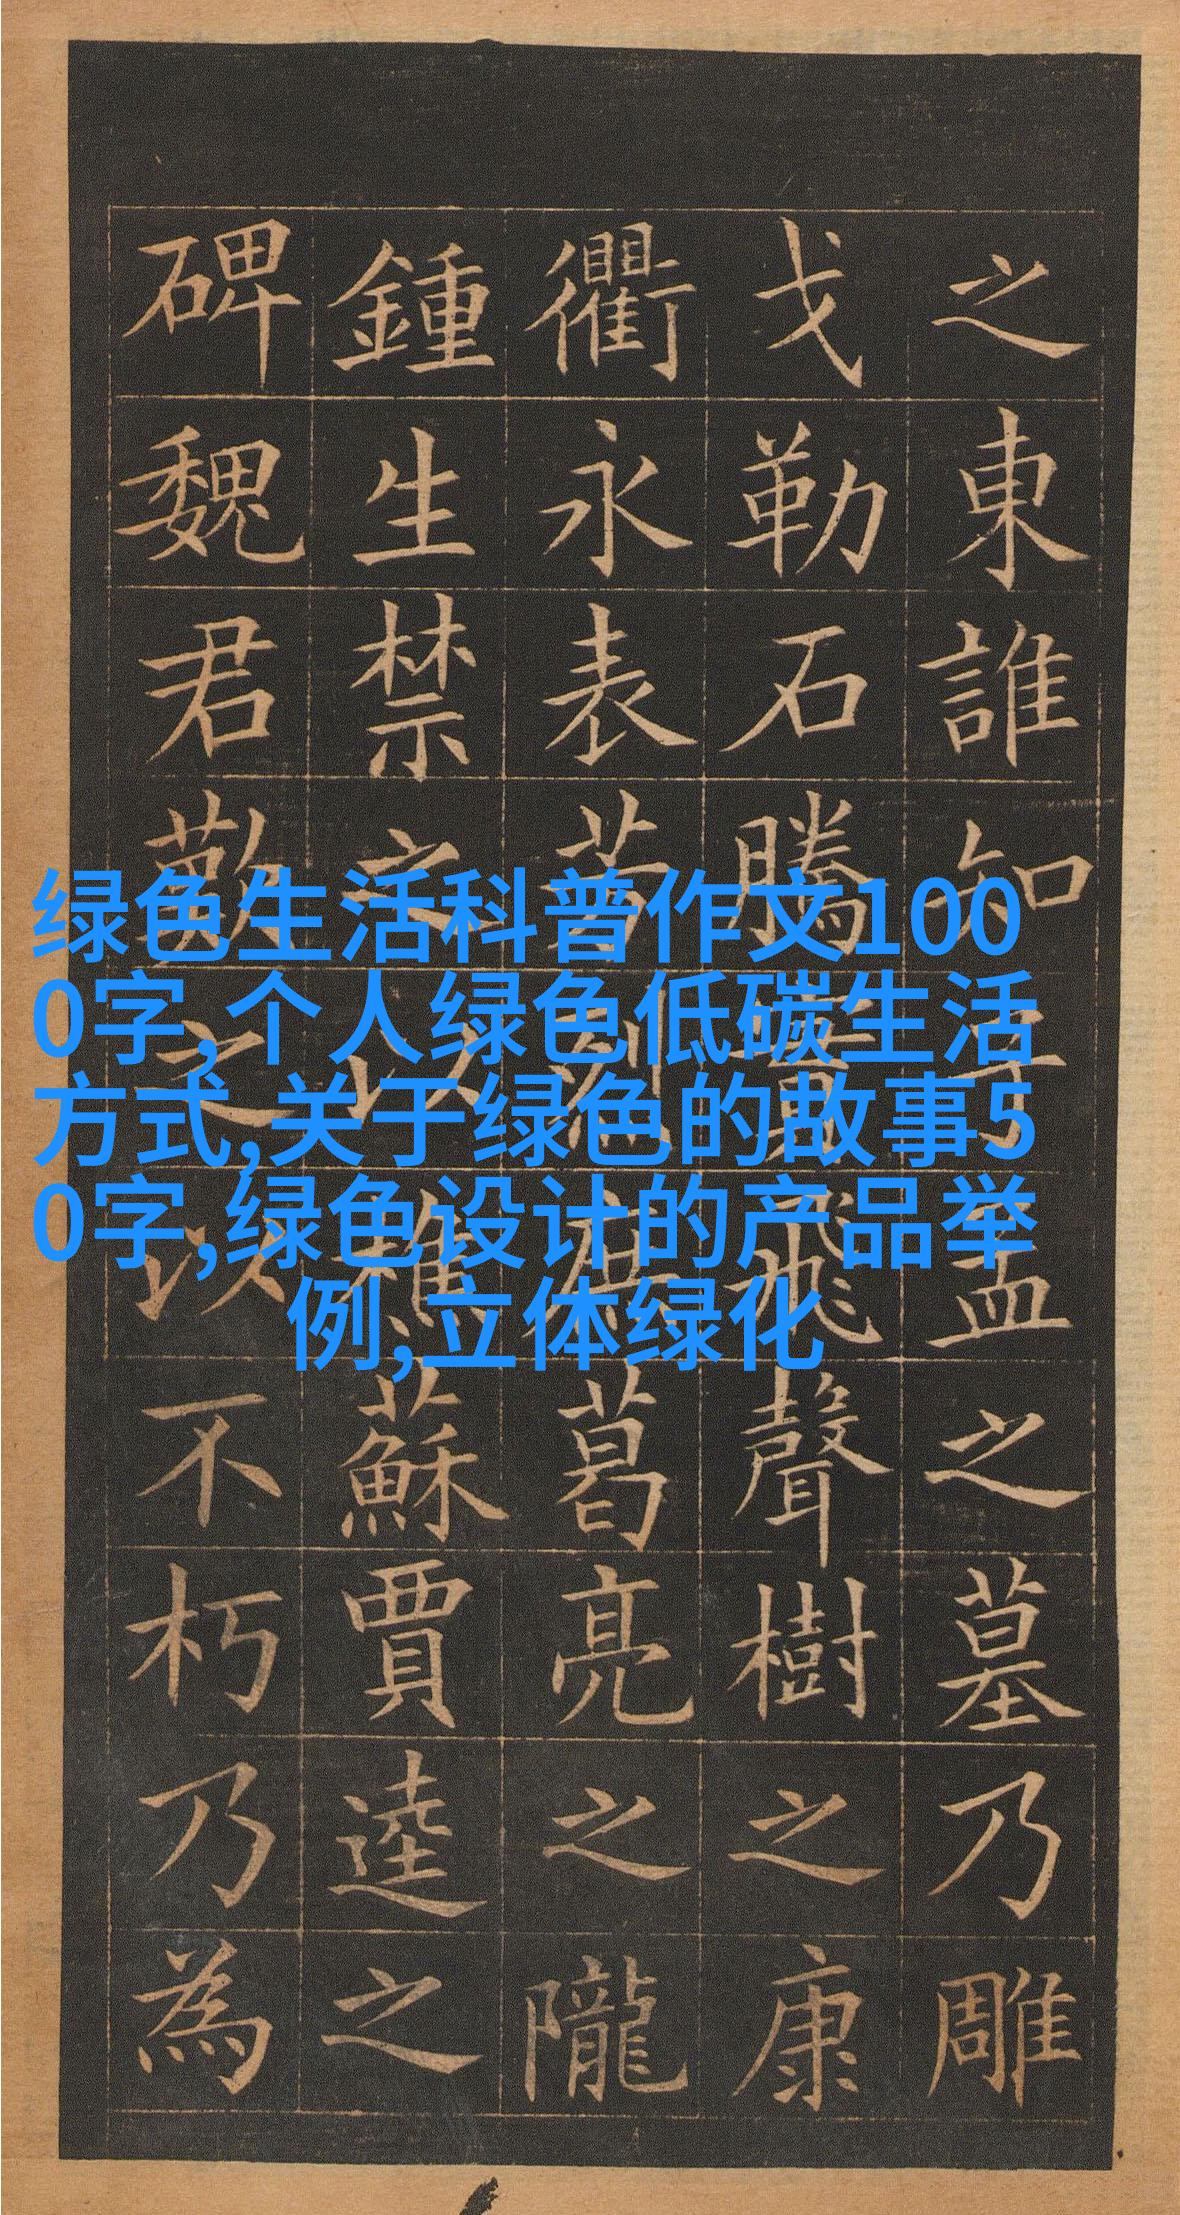 之東誰知孟之墓乃雕
戈勒石騰實飛聲樹之康
衢永表芳烈庶葛亮之隴
鍾生禁之以樵蘇賈逵之
碑魏君勤之以不朽乃為
绿色生活科普作文100
0字,个人绿色低碳生活
方式,关于绿色的故事5
0字,绿色设计的产品举
例,立体绿化